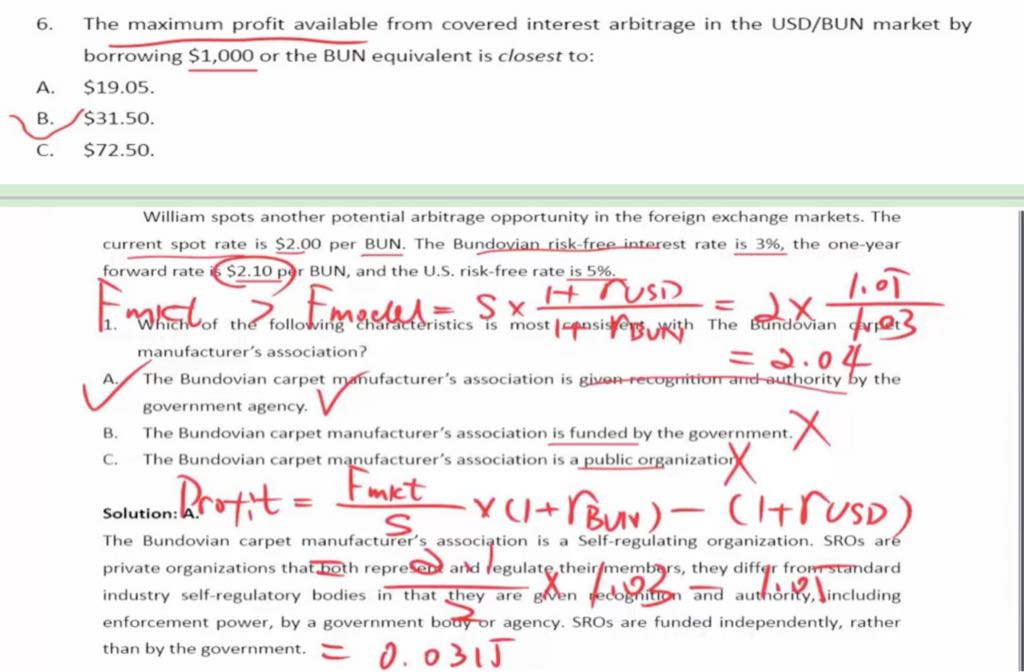 6. The maximum profit available from covered interest arbitrage in the USD/BUN market by
borrowing $1,000 or the BUN equivalent is closest to:
A. $19.05.
B. $31.50.
C. $72.50.
William spots another potential arbitrage opportunity in the foreign exchange markets. The
current spot rate is $2.00 per BUN. The Bundovian risk-free interest rate is 3%, the one-year
forward rate is $2.10 per BUN, and the U.S. risk-free rate is 5%.
Fmkt > Fmodel = S × (1+ rUSD)/(1+ rBUN) = 2 × 1.05/1.03
= 2.04
1. Which of the following characteristics is most consistent with The Bundovian carpet
manufacturer's association?
A. The Bundovian carpet manufacturer's association is given recognition and authority by the
government agency.
B. The Bundovian carpet manufacturer's association is funded by the government.
C. The Bundovian carpet manufacturer's association is a public organization
Profit = Fmkt/S × (1+rBUN) − (1+rUSD)
Solution: A.
The Bundovian carpet manufacturer's association is a Self-regulating organization. SROs are
private organizations that both represent and regulate their members, they differ from standard
industry self-regulatory bodies in that they are given recognition and authority, including
= 2.1/2 × 1.03 − 1.05
enforcement power, by a government body or agency. SROs are funded independently, rather
than by the government.
= 0.0315